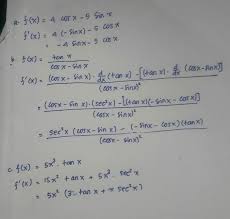 a. f(x) = 4 cos x - 5 sin x
f'(x) = 4 (-sin x) - 5 cos x
= -4 sin x - 5 cos x
b. f(x) = tan x / cos x - sin x
f'(x) = (cos x - sin x) · d/dx (tan x) - [(tan x) · d/dx (cos x - sin x)] / (cos x - sin x)²
= (cos x - sin x) · (sec² x) - [(tan x)(-sin x - cos x)] / (cos x - sin x)²
= sec² x (cos x - sin x) - (-sin x - cos x)(tan x) / (cos x - sin x)²
c. f(x) = 5x³ · tan x
f'(x) = 15x² tan x + 5x³ · sec² x
= 5x² (3 tan x + x sec² x)